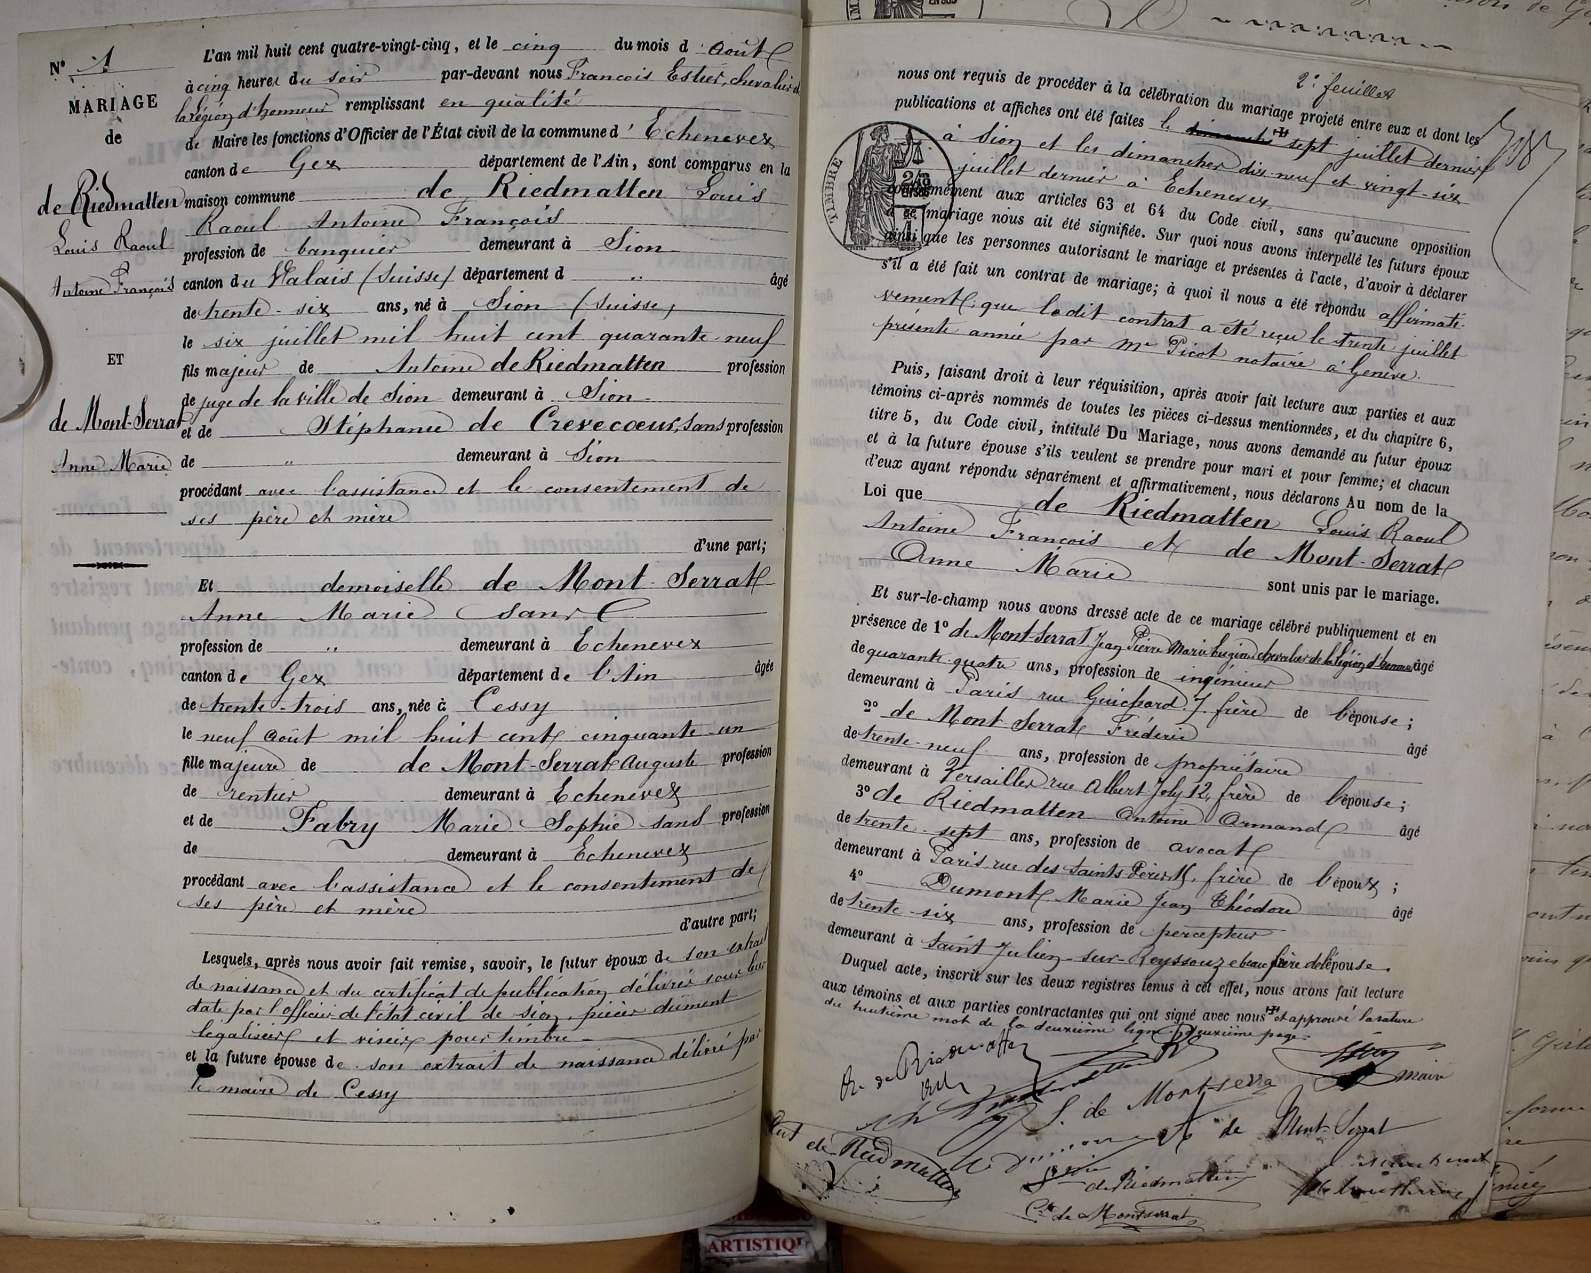 N° 1
MARIAGE
de
de Riedmatten
Louis Raoul
Antoine François
ET
de Mont-Serrat
Anne Marie
L'an mil huit cent quatre-vingt-cinq, et le cinq du mois d'août
à cinq heures du soir par-devant nous François Estier, chevalier d
la légion d'honneur remplissant en qualité
de Maire les fonctions d'Officier de l'État civil de la commune d'Echenevex
canton de Gex département de l'Ain, sont comparus en la
maison commune de Riedmatten Louis
Raoul Antoine François
profession de banquier demeurant à Sion
canton du Valais (Suisse) département d " âgé
de trente-six ans, né à Sion (Suisse)
le six juillet mil huit cent quarante neuf
fils majeur de Antoine de Riedmatten profession
de juge de la ville de Sion demeurant à Sion
et de Stéphanie de Crevecoeur, sans profession
de " demeurant à Sion
procédant avec l'assistance et le consentement de
ses père et mère
d'une part;
Et demoiselle de Mont-Serrat
Anne Marie sans
profession de " demeurant à Echenevex
canton de Gex département de l'Ain âgée
de trente-trois ans, née à Cessy
le neuf août mil huit cent cinquante-un
fille majeure de de Mont-Serrat Auguste profession
de rentier demeurant à Echenevex
et de Fabry Marie Sophie sans profession
de demeurant à Echenevex
procédant avec l'assistance et le consentement de
ses père et mère
d'autre part;
Lesquels, après nous avoir fait remise, savoir, le futur époux de son extrait
de naissance et du certificat de publication délivrés sous leur
date par l'officier de l'état civil de Sion, pièces dûment
légalisées et visées pour timbre
et la future épouse de son extrait de naissance délivré par
le maire de Cessy
2e feuillet
nous ont requis de procéder à la célébration du mariage projeté entre eux et dont les
publications et affiches ont été faites le dimanche sept juillet dernier
à Sion et les dimanches dix neuf et vingt-six
juillet dernier à Echenevex
TIMBRE
conformément aux articles 63 et 64 du Code civil, sans qu'aucune opposition
à ce mariage nous ait été signifiée. Sur quoi nous avons interpellé les futurs époux
ainsi que les personnes autorisant le mariage et présentes à l'acte, d'avoir à déclarer
s'il a été fait un contrat de mariage; à quoi il nous a été répondu affirmati-
vement, que ledit contrat a été reçu le trente juillet
présente année par Me Picot notaire à Genève.
Puis, faisant droit à leur réquisition, après avoir fait lecture aux parties et aux
témoins ci-après nommés de toutes les pièces ci-dessus mentionnées, et du chapitre 6,
titre 5, du Code civil, intitulé Du Mariage, nous avons demandé au futur époux
et à la future épouse s'ils veulent se prendre pour mari et pour femme; et chacun
d'eux ayant répondu séparément et affirmativement, nous déclarons Au nom de la
Loi que de Riedmatten Louis Raoul
Antoine François et de Mont-Serrat
Anne Marie sont unis par le mariage.
Et sur-le-champ nous avons dressé acte de ce mariage célébré publiquement et en
présence de 1° de Mont-Serrat Jean Pierre Marie chevalier de la légion d'honneur âgé
de quarante-quatre ans, profession de ingénieur
demeurant à Paris rue Guichard 7 frère de l'épouse;
2° de Mont Serrat Fréderic âgé
de trente-neuf ans, profession de propriétaire
demeurant à Versailles rue Albert Joly 12, frère de l'épouse;
3° de Riedmatten Antoine Armand âgé
de trente-sept ans, profession de avocat
demeurant à Paris rue des Saints Pères frère de l'époux;
4° Dumont Marie Jean Théodore âgé
de trente six ans, profession de percepteur
demeurant à Saint Julien-sur-Reyssouze beau frère de l'épouse.
Duquel acte, inscrit sur les deux registres tenus à cet effet, nous avons fait lecture
aux témoins et aux parties contractantes qui ont signé avec nous et approuvé la rature
du huitième mot de la deuxième ligne deuxième page.
R. de Riedmatten
maire
S. de Montserra
A de Mont-Serrat
Ant de Riedmatten
de Riedmatten
Cte de Montserrat
ARTISTIQU